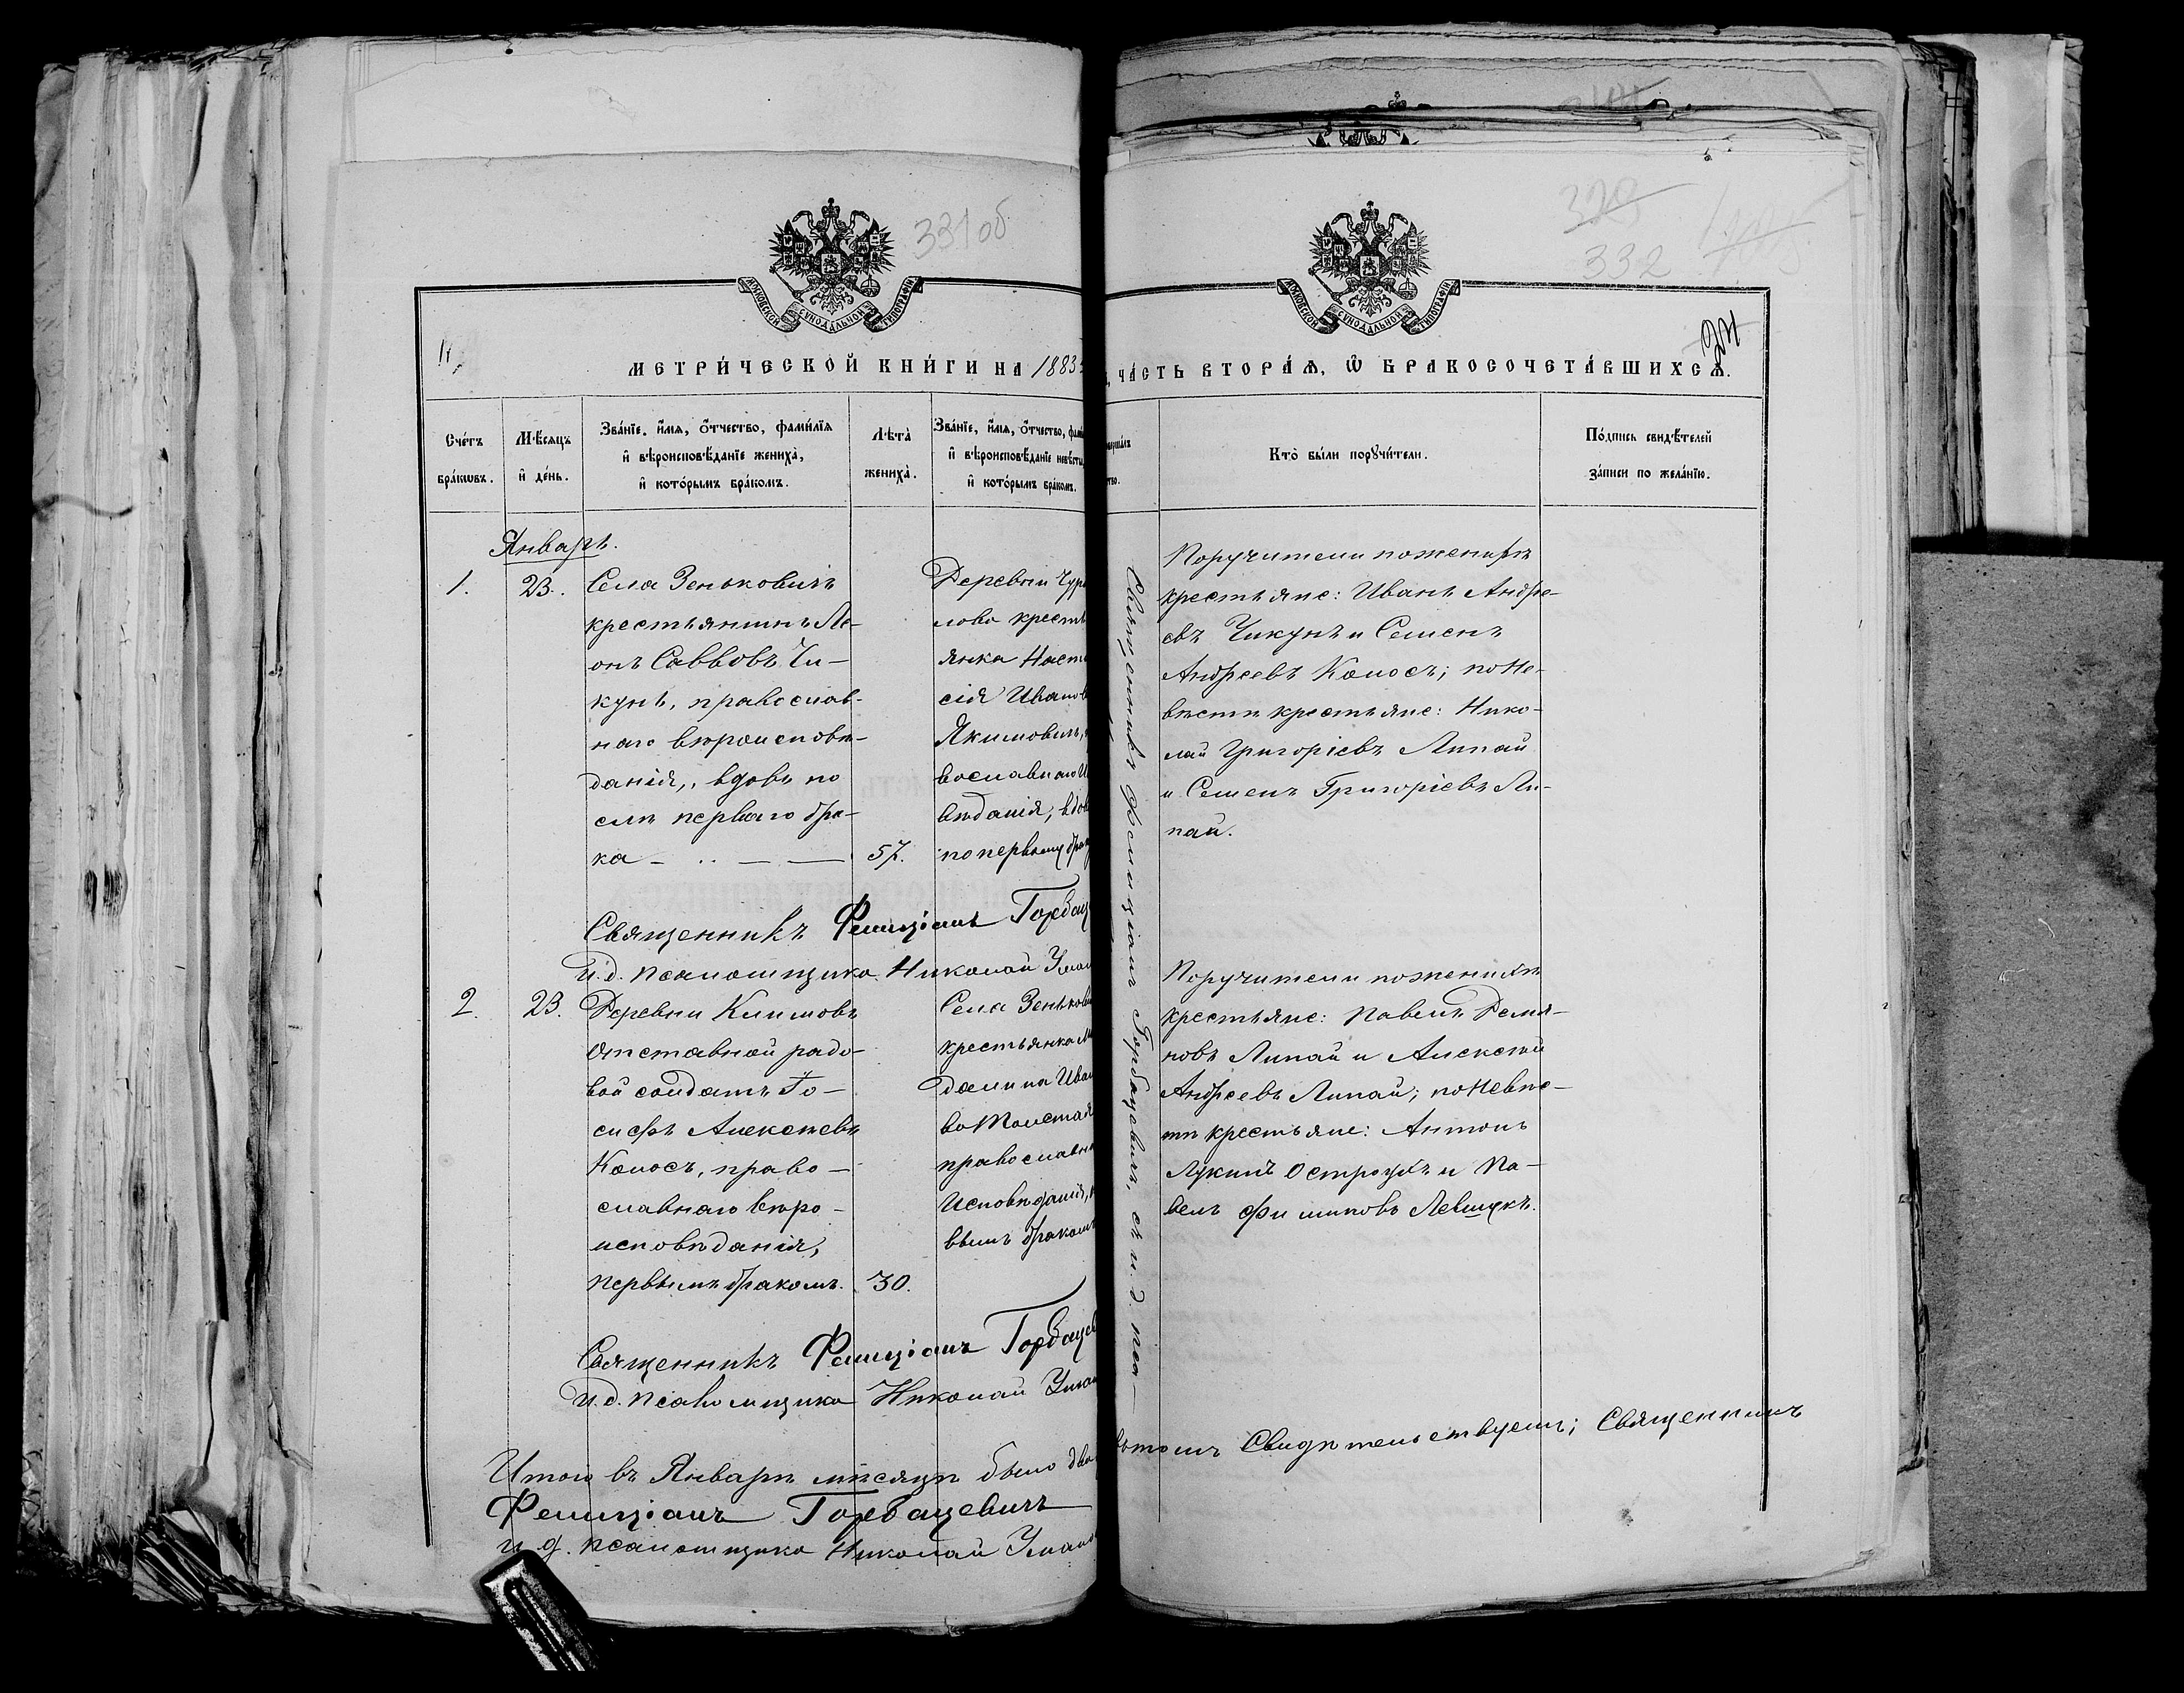 331 об
332
МОСКОВСКОЙ СѴНОДАЛЬНОЙ ТИПОГРАФІИ
МОСКОВСКОЙ СѴНОДАЛЬНОЙ ТИПОГРАФІИ
МЕТРИ́ЧЕСКОЙ КНИ́ГИ НА 1883
ЧА́СТЬ ВТОРА́Ѧ, Ѡ БРАКОСОЧЕТА́ВШИХСѦ.
Сче́тъ бра́кѡвъ.
Мѣ́сяцъ и҆ де́нь.
Зва́нїе, и҆́мя, о҆́тчество, фами́лїя и҆ вѣроисповѣ́данїе жениха̀, и҆ кото́рымъ бра́комъ.
Лѣ́та̀ жениха̀.
Зва́нїе, и҆́мя, о҆́тчество,
и҆ вѣроисповѣ́данїе невѣ́сты,
и҆ кото́рымъ бра́комъ.
Кто̀ бы́ли порꙋчи́тели.
По́дпись свидѣ́телей за́писи по жела́нїю.
Январь.
1.
23.
Села Зеньковичъ
крестьянинъ Ле-
онъ Саввовъ Чи-
кунъ, православ-
наго вѣроисповѣ-
данія, вдовъ по
слѣ перваго бра-
ка
57.
Деревни
лово кресть
янка Наст
сія Иванов
Якимовичъ,
вославнаго
вѣданія, вдов
по первому
Поручители по женихѣ
крестьяне: Иванъ Андре-
евъ Чикунъ и Семенъ
Андреевъ Колосъ; по не-
вѣстѣ крестьяне: Нико-
лай Григоріевъ Липай
и Семенъ Григоріевъ Ли-
пай.
Священникъ Фелиціанъ Горбац
И. д. псаломщика Николай
2.
23.
Деревни Климовъ
отставной рядо-
вой солдатъ Іо-
сифъ Алексѣевъ
Колосъ, право-
славнаго вѣро-
исповѣданія,
первымъ бракомъ.
30.
Села Зеньков
крестьянка
далина Иван
ва Толстая
православн
исповѣданія,
вымъ бракомъ
Поручители по женихѣ
крестьяне: Павелъ Демя-
новъ Липай и Алексѣй
Андреевъ Липай; по невѣс-
тѣ крестьяне: Антонъ
Лукинъ Остроухъ и Па-
велъ Филиповъ Левшукъ.
Священникъ Фелиціанъ Горбацев
И. д. псаломщика Николай
Священникъ Фелиціанъ Горбацевичъ, съ и. д. пса-
Итого въ Январѣ мѣсяцѣ было два
томъ свидѣтельствуемъ; Священникъ
Фелиціанъ Горбацевичъ
и д. псаломщика Николай